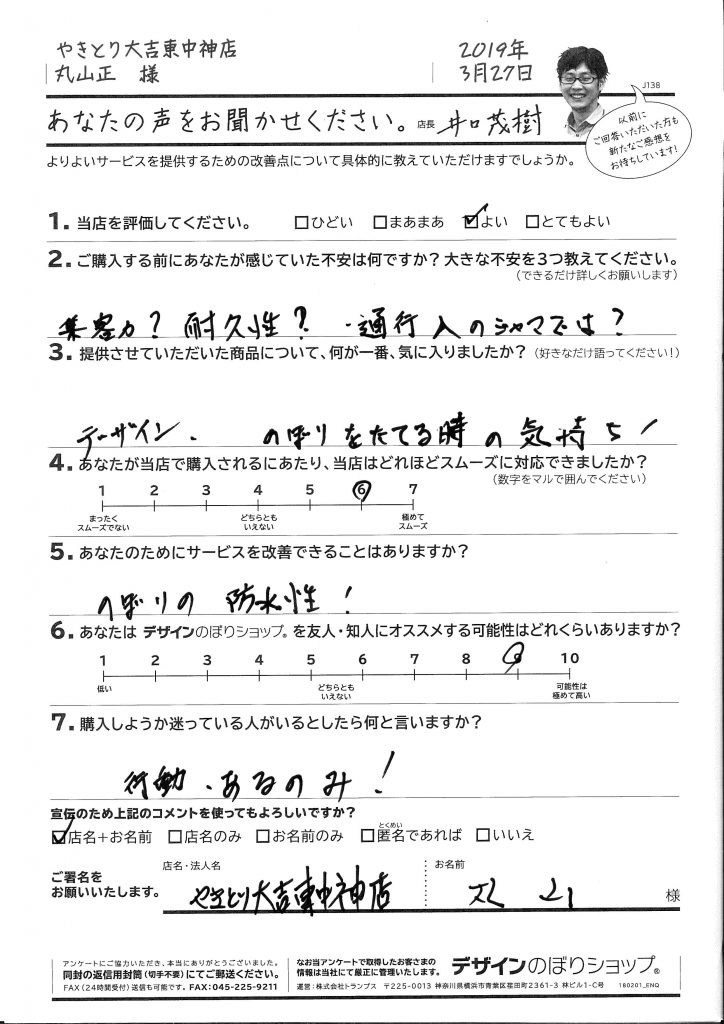 やきとり大吉東中神店
丸山正 様
2019年
3月27日
J138
あなたの声をお聞かせください。 店長 井口茂樹
以前に
ご回答いただいた方も
新たなご感想を
お待ちしています!
よりよいサービスを提供するための改善点について具体的に教えていただけますでしょうか。
1. 当店を評価してください。 □ひどい □まあまあ ☑よい □とてもよい
2. ご購入する前にあなたが感じていた不安は何ですか？大きな不安を3つ教えてください。
（できるだけ詳しくお願いします）
集客力？ 耐久性？ ・通行人のジャマでは？
3. 提供させていただいた商品について、何が一番、気に入りましたか？（好きなだけ語ってください！）
デザイン、 のぼりをたてる時の気持ち！
4. あなたが当店で購入されるにあたり、当店はどれほどスムーズに対応できましたか？
（数字をマルで囲んでください）
1 2 3 4 5 6 7
まったく
スムーズでない
どちらとも
いえない
極めて
スムーズ
5. あなたのためにサービスを改善できることはありますか？
のぼりの 防水性！
6. あなたは デザインのぼりショップ® を友人・知人にオススメする可能性はどれくらいありますか？
1 2 3 4 5 6 7 8 9 10
低い
どちらとも
いえない
可能性は
極めて高い
7. 購入しようか迷っている人がいるとしたら何と言いますか？
行動、あるのみ！
宣伝のため上記のコメントを使ってもよろしいですか？
☑店名＋お名前 □店名のみ □お名前のみ □匿名であれば □いいえ
とくめい
ご署名を
お願いいたします。
店名・法人名
やきとり大吉東中神店
お名前
丸山 様
アンケートにご協力いただき、本当にありがとうございました。
同封の返信用封筒（切手不要）にてご郵送ください。
FAX（24時間受付）送信も可能です。FAX：045-225-9211
なお当アンケートで取得したお客さまの
情報は当社にて厳正に管理いたします。
デザインのぼりショップ®
運営：株式会社トランプス 〒225-0013 神奈川県横浜市青葉区荏田町2361-3 林ビル1-C号
180201_ENQ